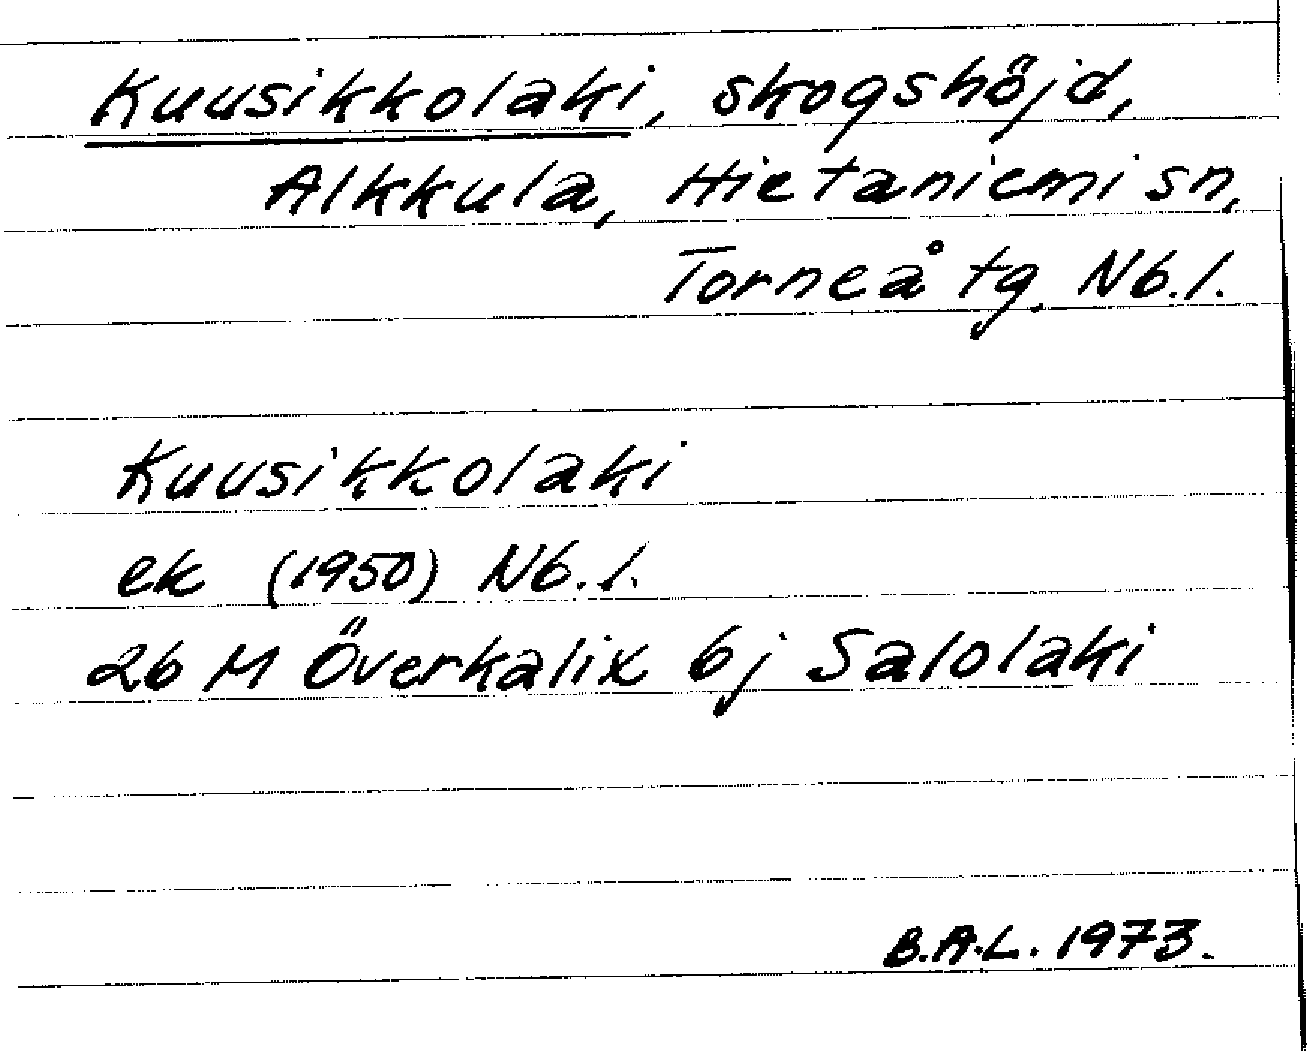 Kuusikkolaki, skogshöjd,
Alkkula, Hietaniemi sn,
Torneå tg. Nb.l.
Kuusikkolaki
ek (1950) Nb.l.
26 M Överkalix 6j Salolaki
B.A.L. 1973.